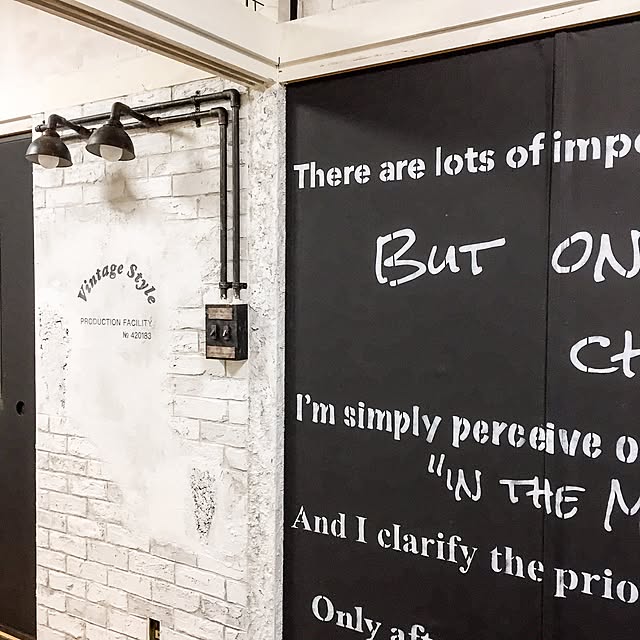 Vintage Style
PRODUCTION FACILITY
№ 420183
There are lots of impo
BUT ON
CH
I'm simply perceive o
"IN THE M
And I clarify the prio
Only af